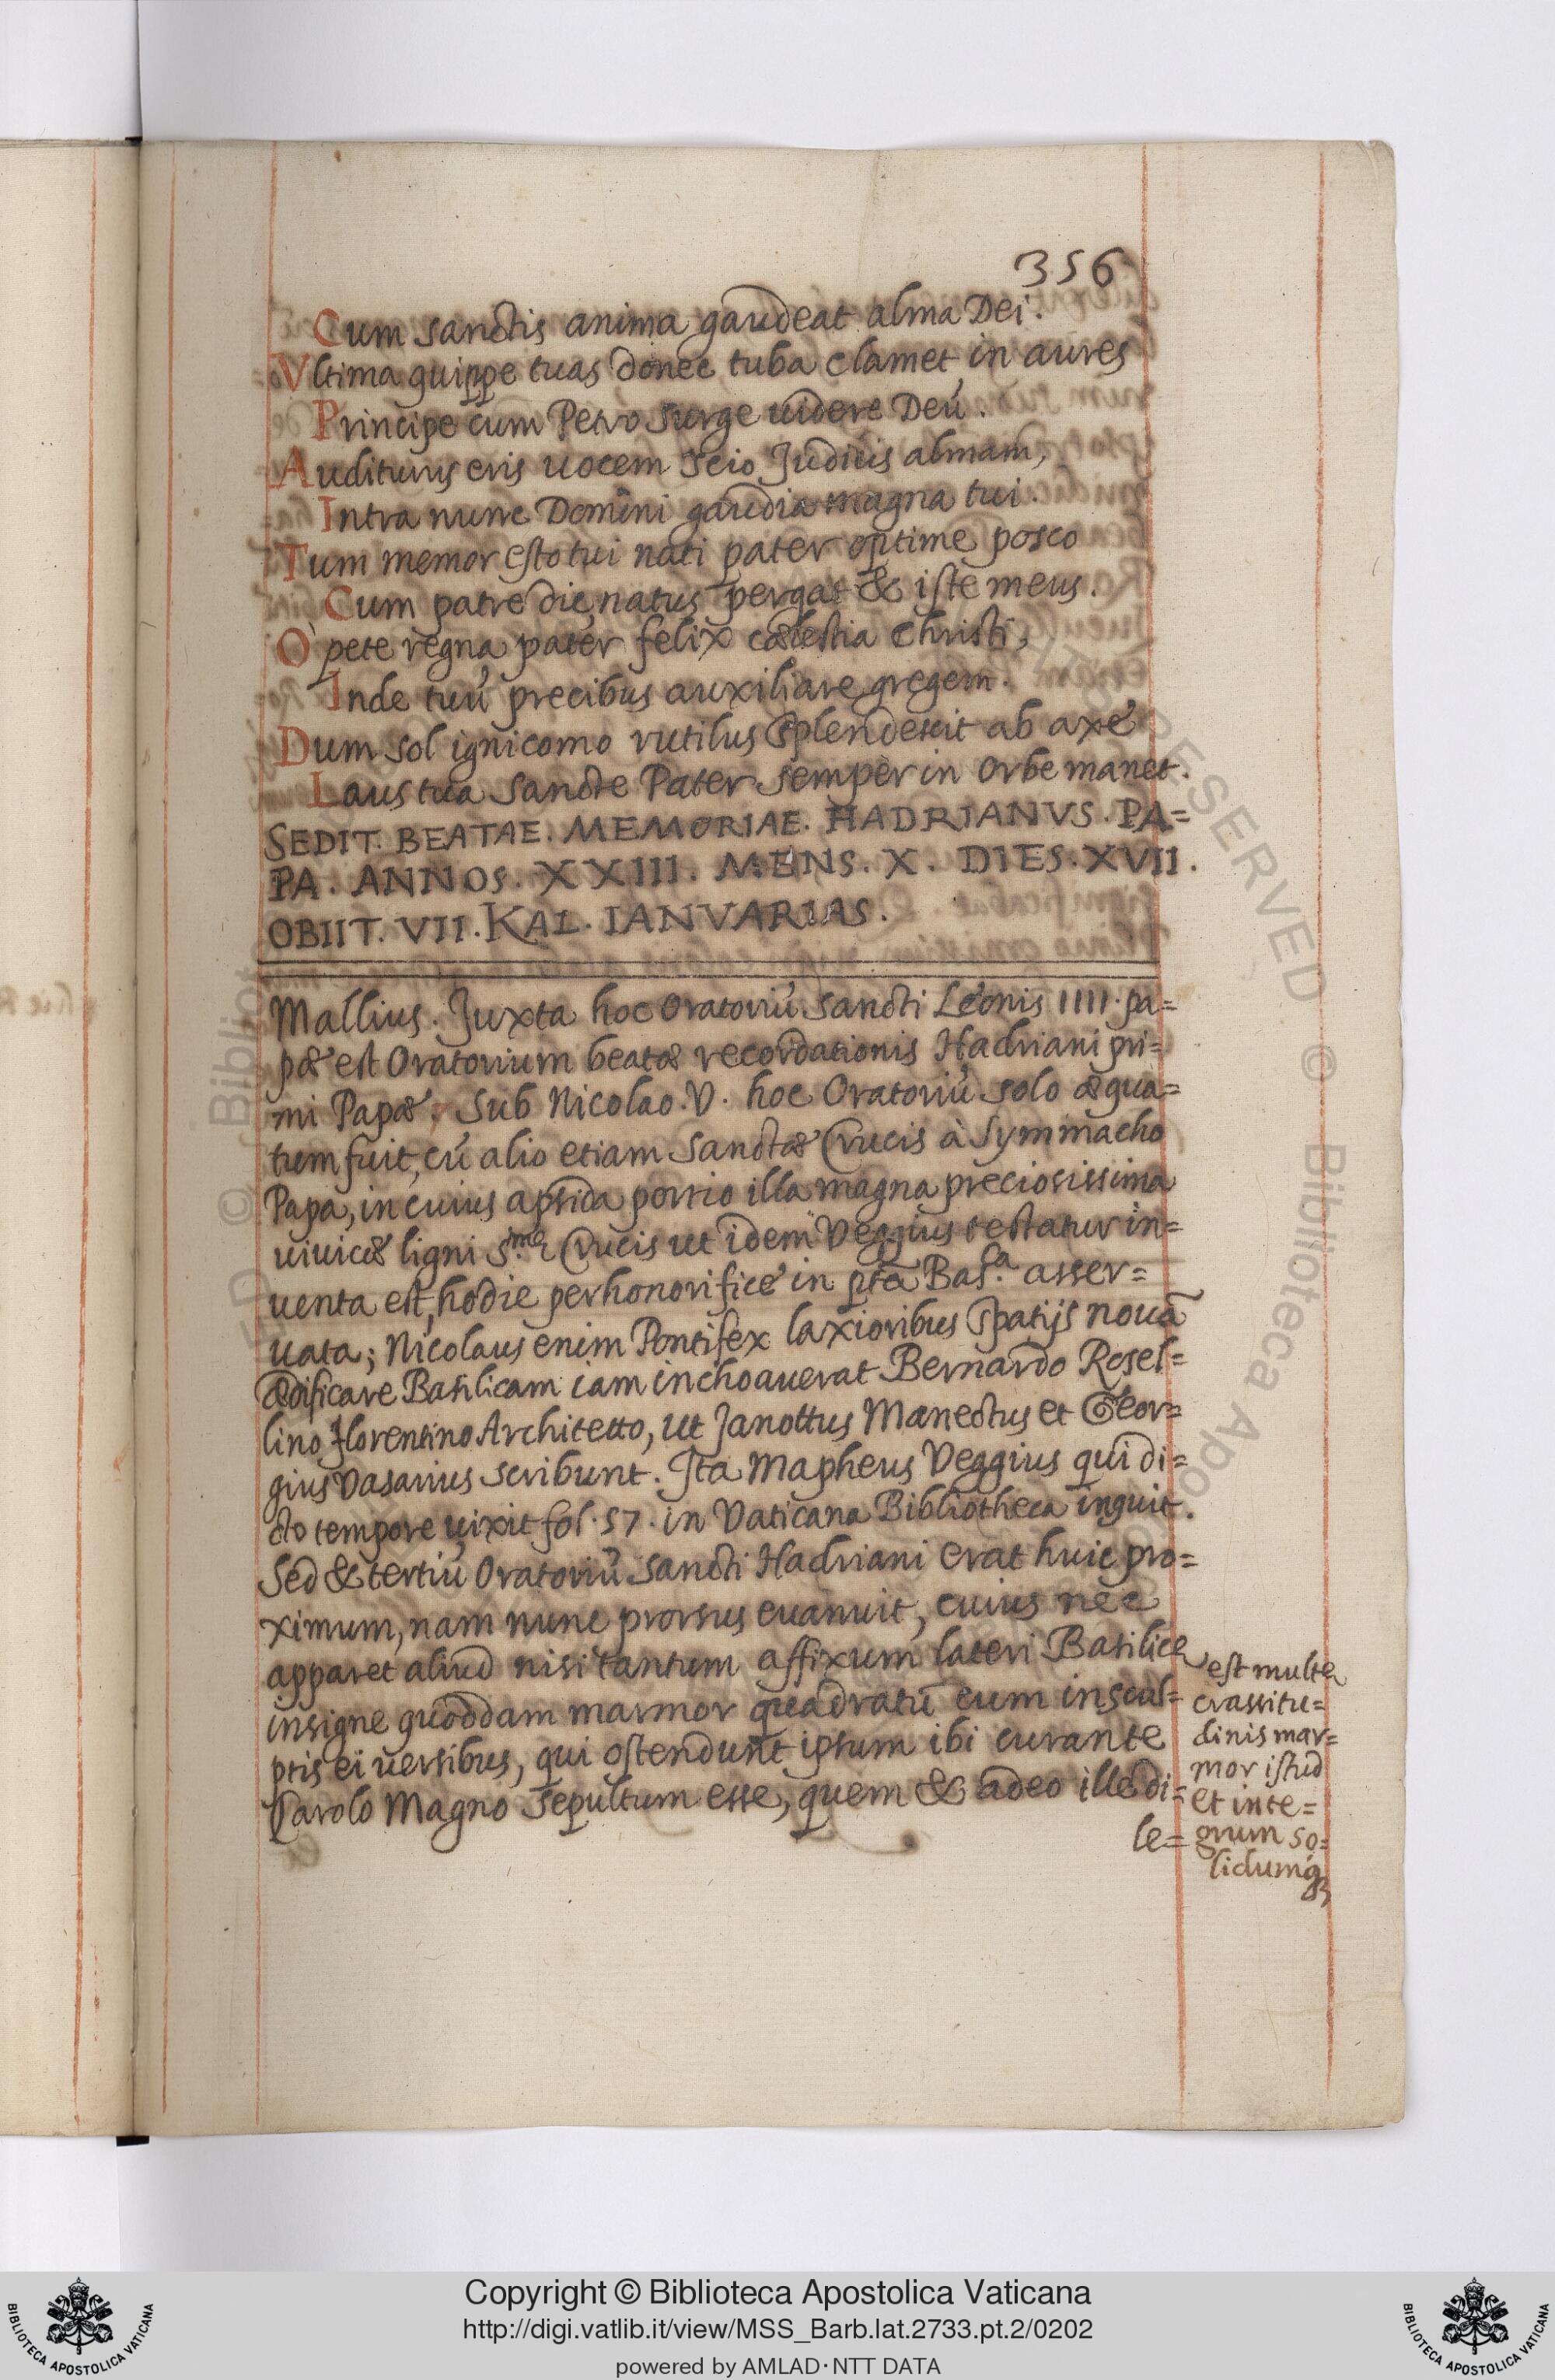 356
Cum sanctis anima gaudeat alma Dei.
Vltima quippe tuas donec tuba clamet in aures
Principe cum Petro surge uidere Deũ.
Auditurus eris uocem scio Judicis almam,
Intra nunc Domini gaudia magna tui.
Tum memor esto tui nati pater optime posco
Cum patre dic, natus pergat & iste meus.
O pete regna pater felix cælestia Christi,
Inde tuũ precibus auxiliare gregem.
Dum sol ignicomo rutilus splendescit ab axe
Laus tua sancte Pater semper in Orbe manet.
SEDIT. BEATAE. MEMORIAE. HADRIANVS. PA=
PA. ANNOS. XXIII. MENS. X. DIES. XVII.
OBIIT. VII. KAL. IANVARIAS.
Mallius. Juxta hoc Oratoriũ sancti Leonis IIII. pa=
pæ est Oratorium beatæ recordationis Hadriani pri=
mi Papæ. Sub Nicolao. V. hoc Oratoriũ solo æqua=
tum fuit, cũ alio etiam sanctæ Crucis à Symmacho
Papa, in cuius apsida portio illa magna preciosissima
uiuicæ ligni S.me Crucis ut idem Veggius testatur in=
uenta est, hodie perhonorifice in pta Bas.ca asser=
uata; Nicolaus enim Pontifex laxioribus spatijs nouã
ædificare Basilicam iam inchoauerat Bernardo Rosel=
lino Florentino Architetto, ut Janottus Manectus et Geor=
gius Vasarius scribunt. Ita Mapheus Veggius qui di=
cto tempore uixit fol. 57. in Vaticana Bibliotheca inquit.
Sed & tertiũ Oratoriũ sancti Hadriani erat huic pro=
ximum, nam nunc prorsus euanuit, cuius nec
apparet aliud nisi tantum affixum lateri Basilicę
insigne quoddam marmor quadratũ cum inscul=
ptis ei uersibus, qui ostendunt ipsum ibi curante
Carolo Magno sepultum esse, quem & adeo ille di=
le=
est multę
crassitu=
dinis mar=
mor istud
et inte=
grum so=
lidumq3
Copyright © Biblioteca Apostolica Vaticana
http://digi.vatlib.it/view/MSS_Barb.lat.2733.pt.2/0202
powered by AMLAD·NTT DATA
BIBLIOTECA APOSTOLICA VATICANA
BIBLIOTECA APOSTOLICA VATICANA